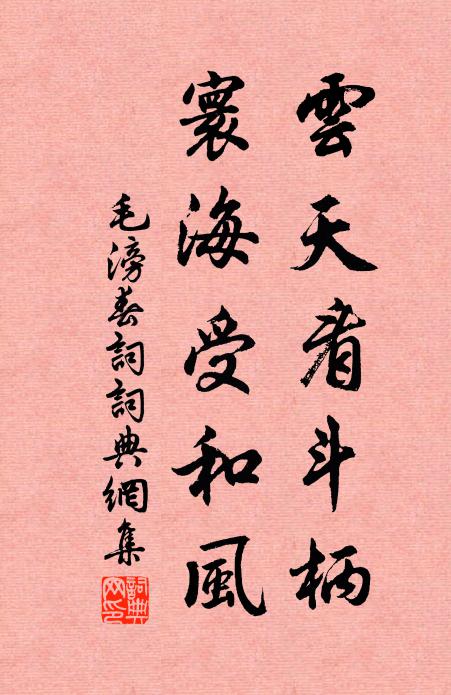 雲天看斗柄
寰海受和風
毛滂春詞詞典網集
詞典網印